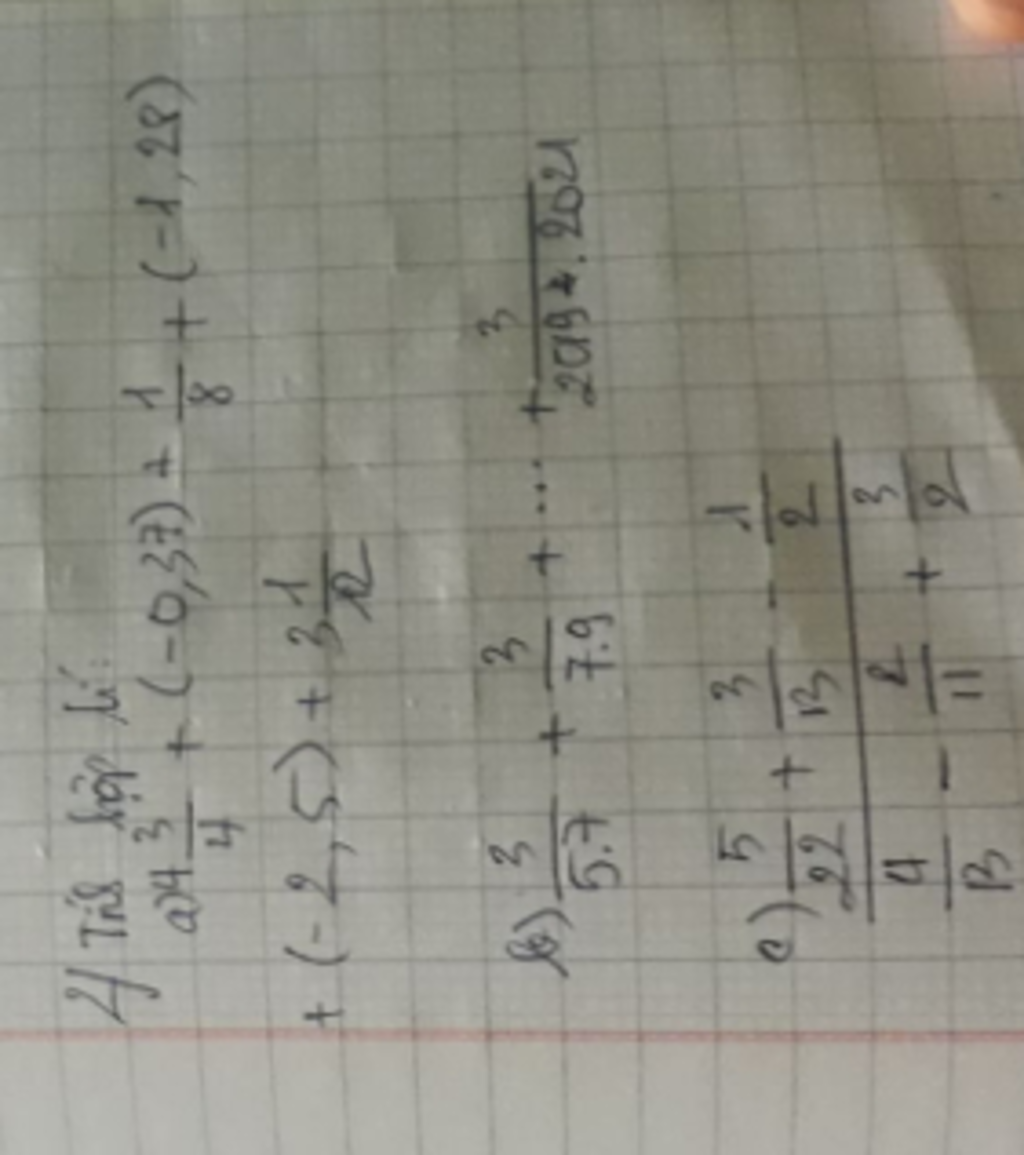 2/ Tính hợp lí:
a) 4 3/4 + (-0,37) + 1/8 + (-1,28)
+ (-2,5) + 3 1/12
b) 3/5.7 + 3/7.9 + ... + 3/2019.2021
c) 5/22 + 3/13 - 1/2
4/13 - 2/11 + 3/2